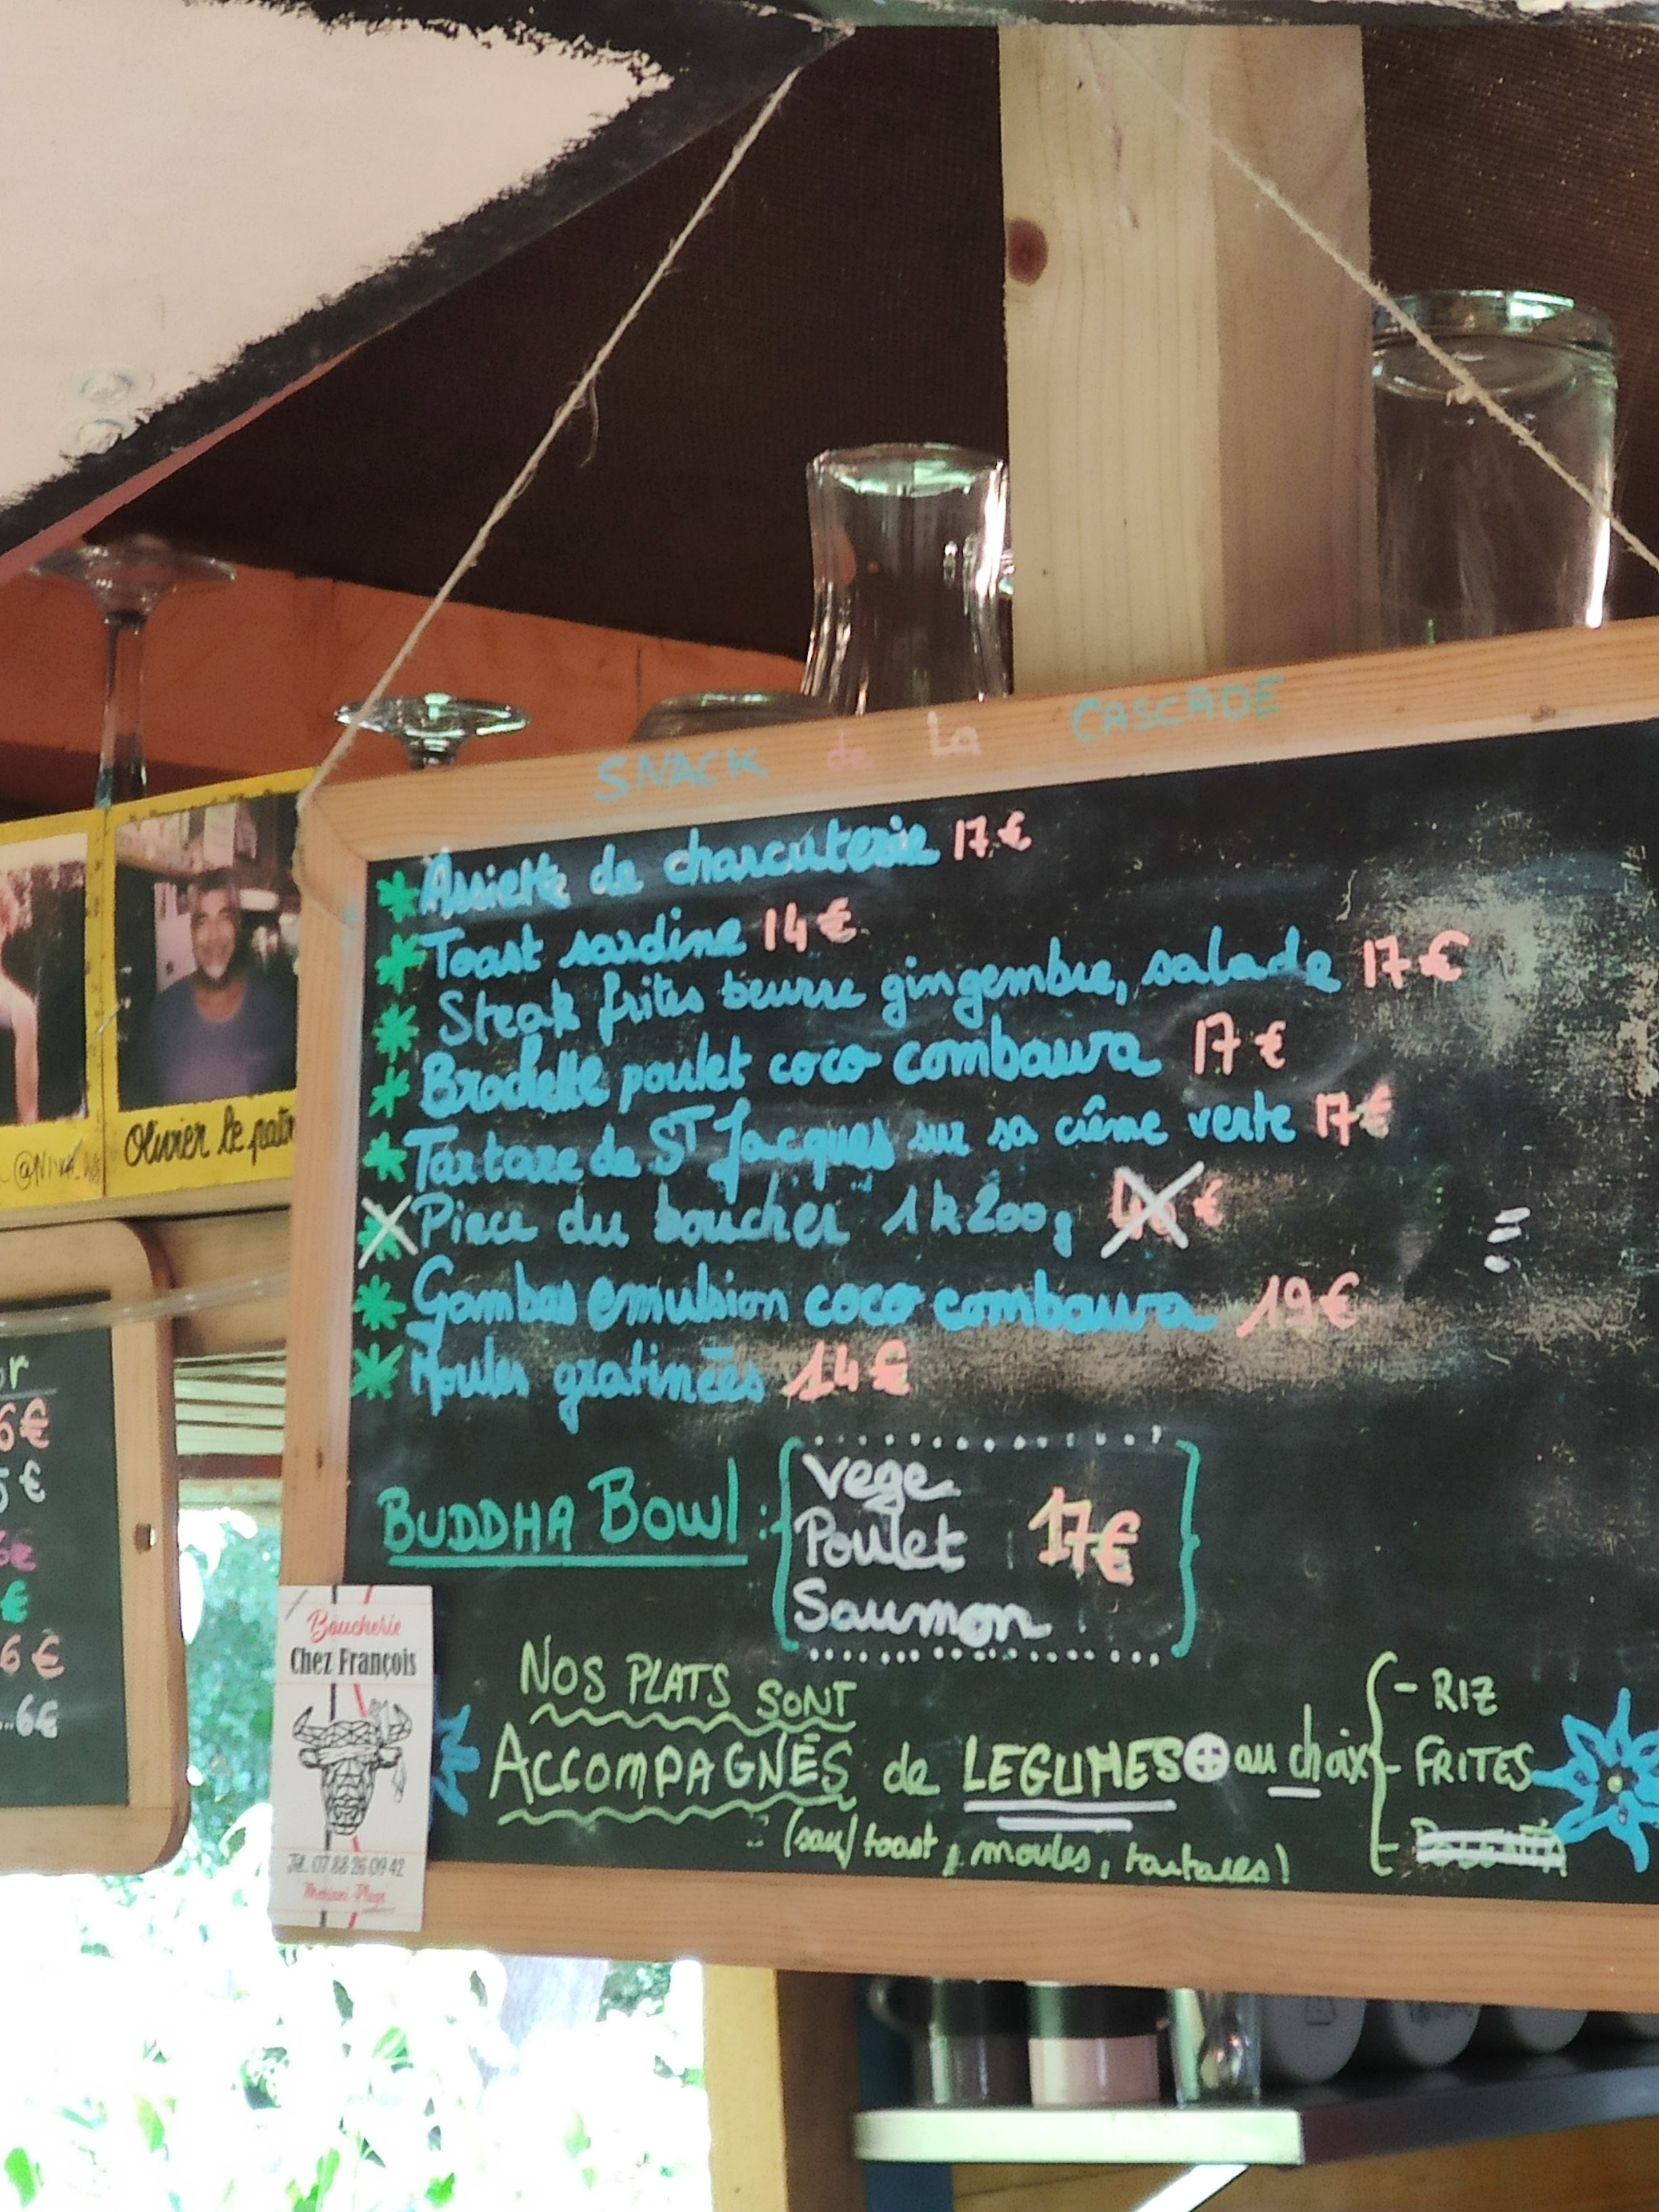 SNACK de La CASCADE
Assiette de charcuterie 17€
Toast sardine 14€
Steak frites beurre gingembre, salade 17€
Brochette poulet coco combawa 17€
Tartare de ST Jacques sur sa crème verte 17€
Piece du boucher 1k200g €
Gambas emulsion coco combawa 19€
Moules gratinées 14€
BUDDHA BOWL : Vege
Poulet 17€
Saumon
NOS PLATS SONT
ACCOMPAGNÉS de LEGUMES + au choix
- RIZ
- FRITES
(sauf toast, moules, tartares!
Boucherie
Chez François
Tél. 07 88 26 09 42
Olivier le patr
r
6€
5€
6€
€
6€
..6€